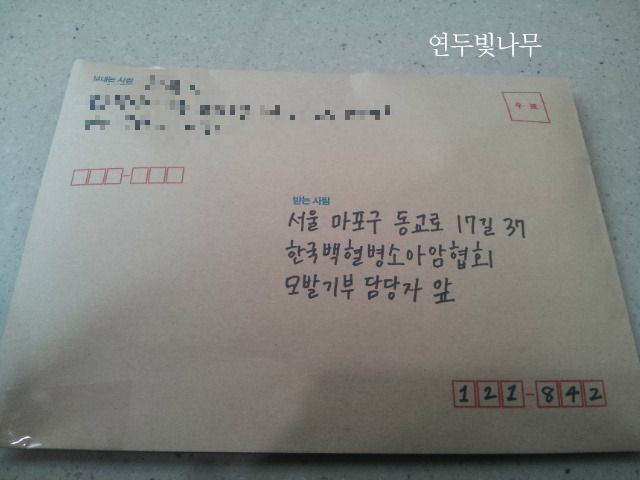 연두빛나무
보내는 사람
우 표
받는 사람
서울 마포구 동교로 17길 37
한국백혈병소아암협회
모발기부 담당자 앞
121-842